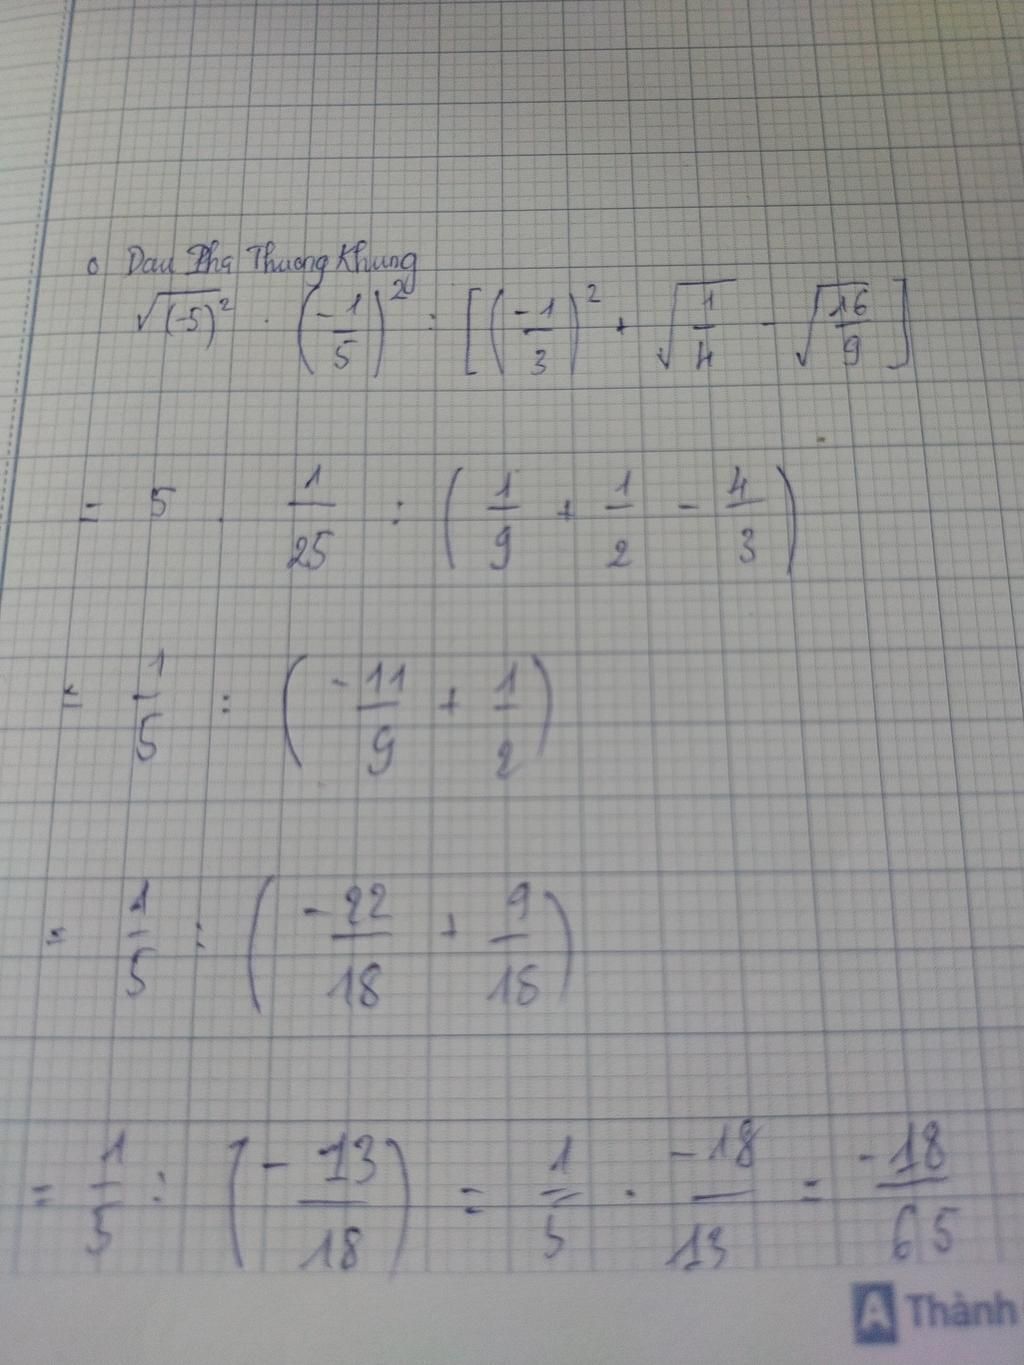 o Dau Pha Thuong Khung
√(-5)² . (-1/5)² : [(-1/3)² + √(1/4) - √(16/9)]
= 5 . 1/25 : (1/9 + 1/2 - 4/3)
= 1/5 : (-11/9 + 1/2)
= 1/5 : (-22/18 + 9/18)
= 1/5 : (-13/18) = 1/5 . -18/13 = -18/65
A Thành